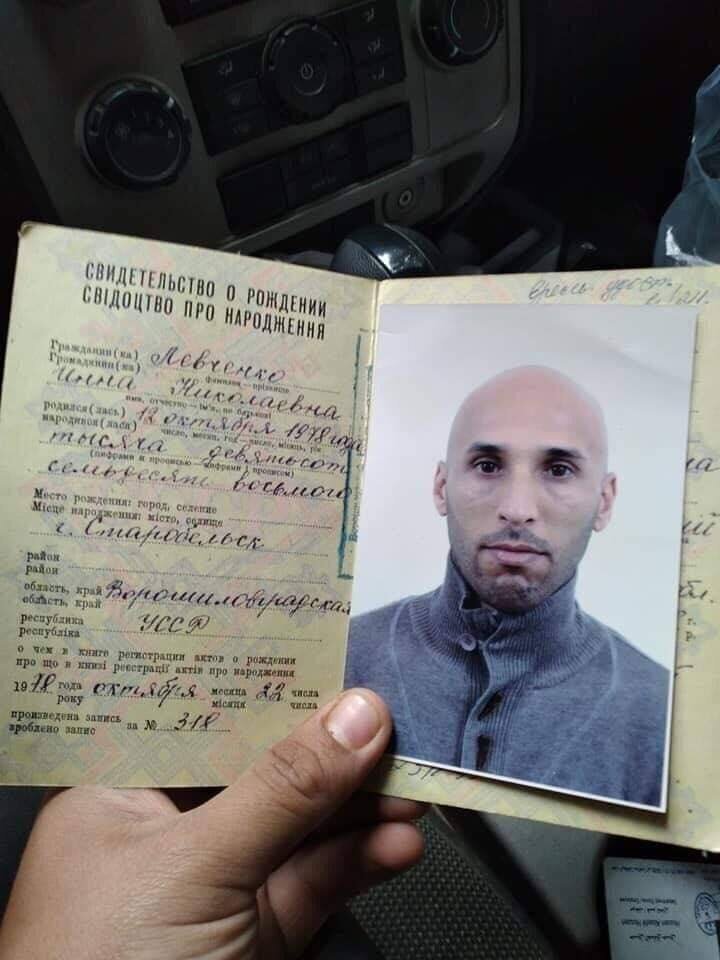 СВИДЕТЕЛЬСТВО О РОЖДЕНИИ
СВІДОЦТВО ПРО НАРОДЖЕННЯ
Гражданин(ка) Левченко
Громадянин(ка)
фамилия — прізвище
Инна Николаевна
имя, отчество — ім'я, по батькові
родился(лась) 12 октября 1978 года
народився(лася)
число, месяц, год — число, місяць, рік
тысяча девятьсот
(цифрами и прописью — цифрами і прописом)
семьдесят восьмого
Место рождения: город, селение
Місце народження: місто, селище
г. Старобельск
район
район
область, край Ворошиловградская
область, край
республика УССР
республіка
о чем в книге регистрации актов о рождении
про що в книзі реєстрації актів про народження
1978 года октября месяца 22 числа
року місяця числа
произведена запись за № 318
зроблено запис